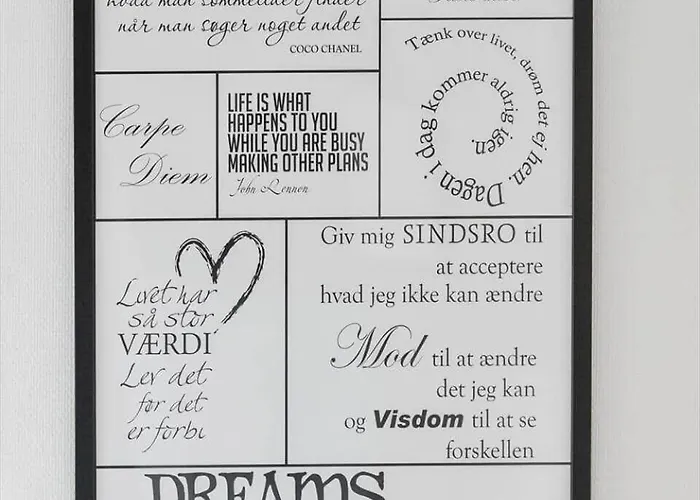 hvad man sommetider finder
når man søger noget andet
COCO CHANEL
Tænk over livet, drøm det ej hen. Dagen i dag kommer aldrig igen.
Carpe
Diem
LIFE IS WHAT
HAPPENS TO YOU
WHILE YOU ARE BUSY
MAKING OTHER PLANS
John Lennon
Livet har
så stor
VÆRDI
Lev det
før det
er forbi
Giv mig SINDSRO til
at acceptere
hvad jeg ikke kan ændre
Mod til at ændre
det jeg kan
og Visdom til at se
forskellen
DREAMS